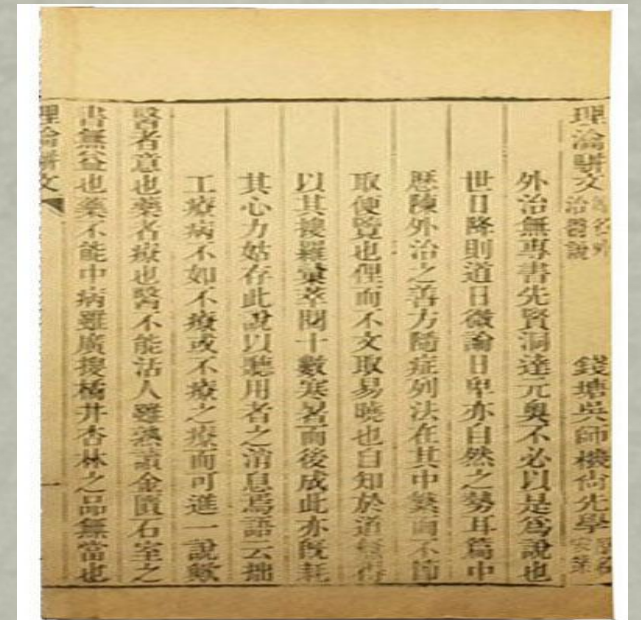 理瀹駢文
治醫說
錢塘吳師機尚先學
外治無專書先賢洞達元奧不必以是為說也
世日降則道日微論日卑亦自然之勢耳篇中
歷陳外治之善方隨症列法在其中繁而不節
取便覽也俚而不文取易曉也自知於道無
以其搜羅彙萃閱十數寒暑而後成此亦既耗
其心力姑存此說以聽用者之消息焉語云拙
工療病不如不療或不療之療而可進一說歟
醫者意也藥者療也醫不能活人雖熟讀金匱石室之
書無益也藥不能中病雖廣搜橘井杏林之品無當也
理瀹駢文
一